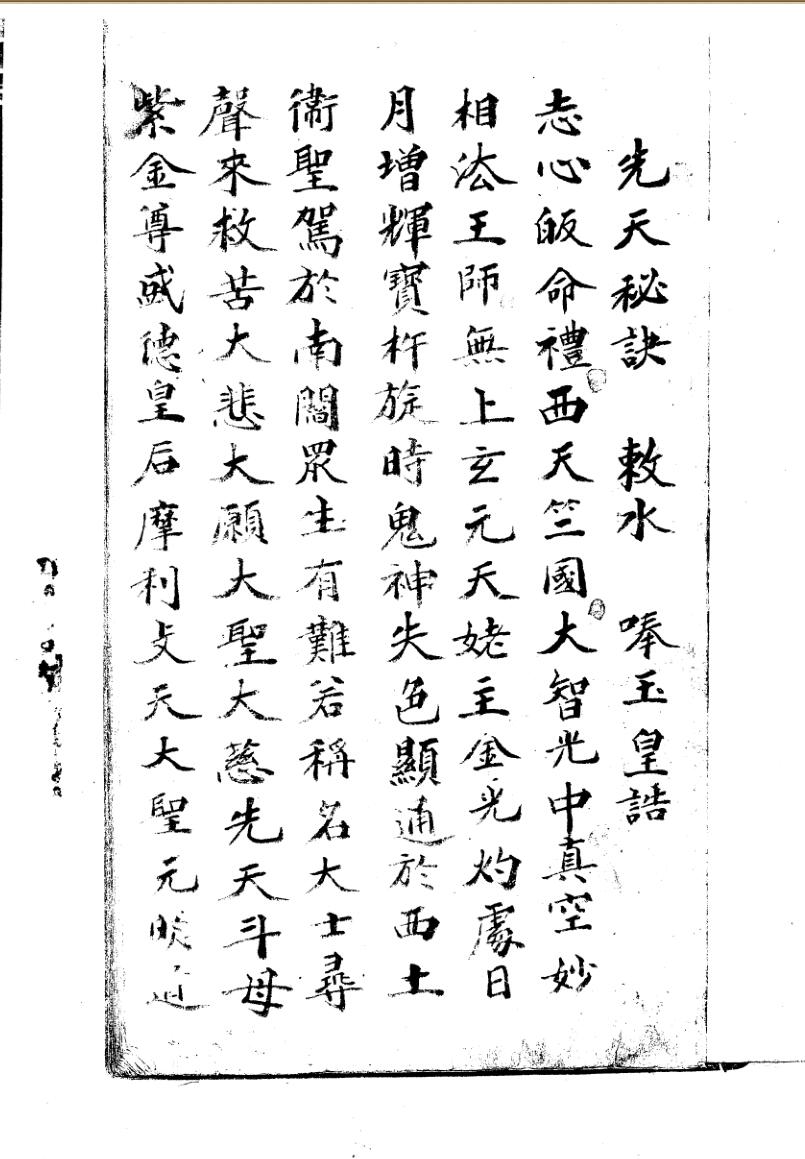 先天秘訣 敕水 唪玉皇誥
志心皈命禮西天竺國大智光中真空妙
相法王師無上玄元天姥主金光灼處日
月增輝寶杵旋時鬼神失色顯通於西土
衛聖駕於南閻眾生有難若稱名大士尋
聲來救苦大悲大願大聖大慈先天斗母
紫金尊威德皇后摩利支天大聖元